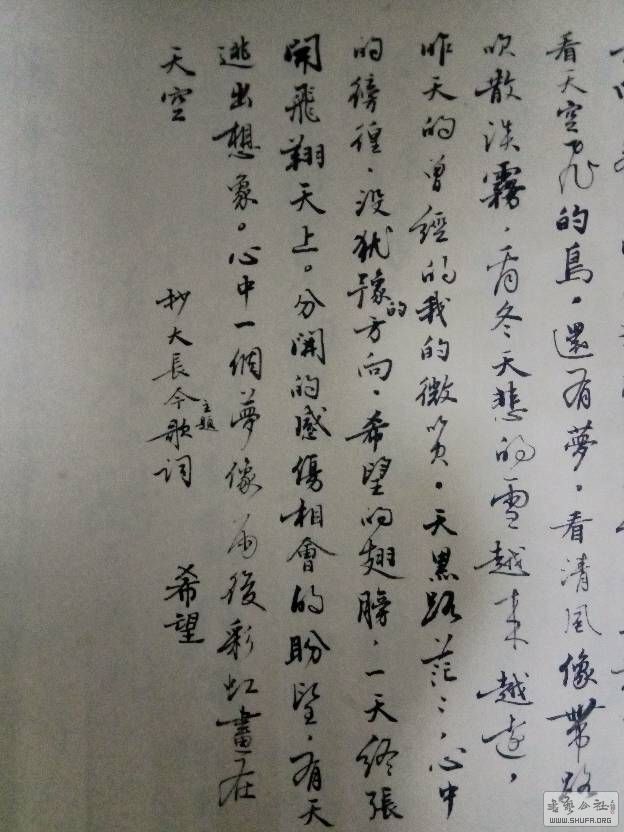 看天空飛的鳥。還有夢。看清風像帶路
吹散淡霧.看冬天悲的雪越来越遠，
昨天的曾經的我的微笑。天黑路茫〻.心中
的徬徨.没猶豫的方向.希望的翅膀.一天終張
開飛翔天上。分開的感傷相會的盼望.有天
逃出想象。心中一個夢像雨後彩虹畫在
天空
抄大長今主題歌词 希望
書藝公社
WWW.SHUFA.ORG